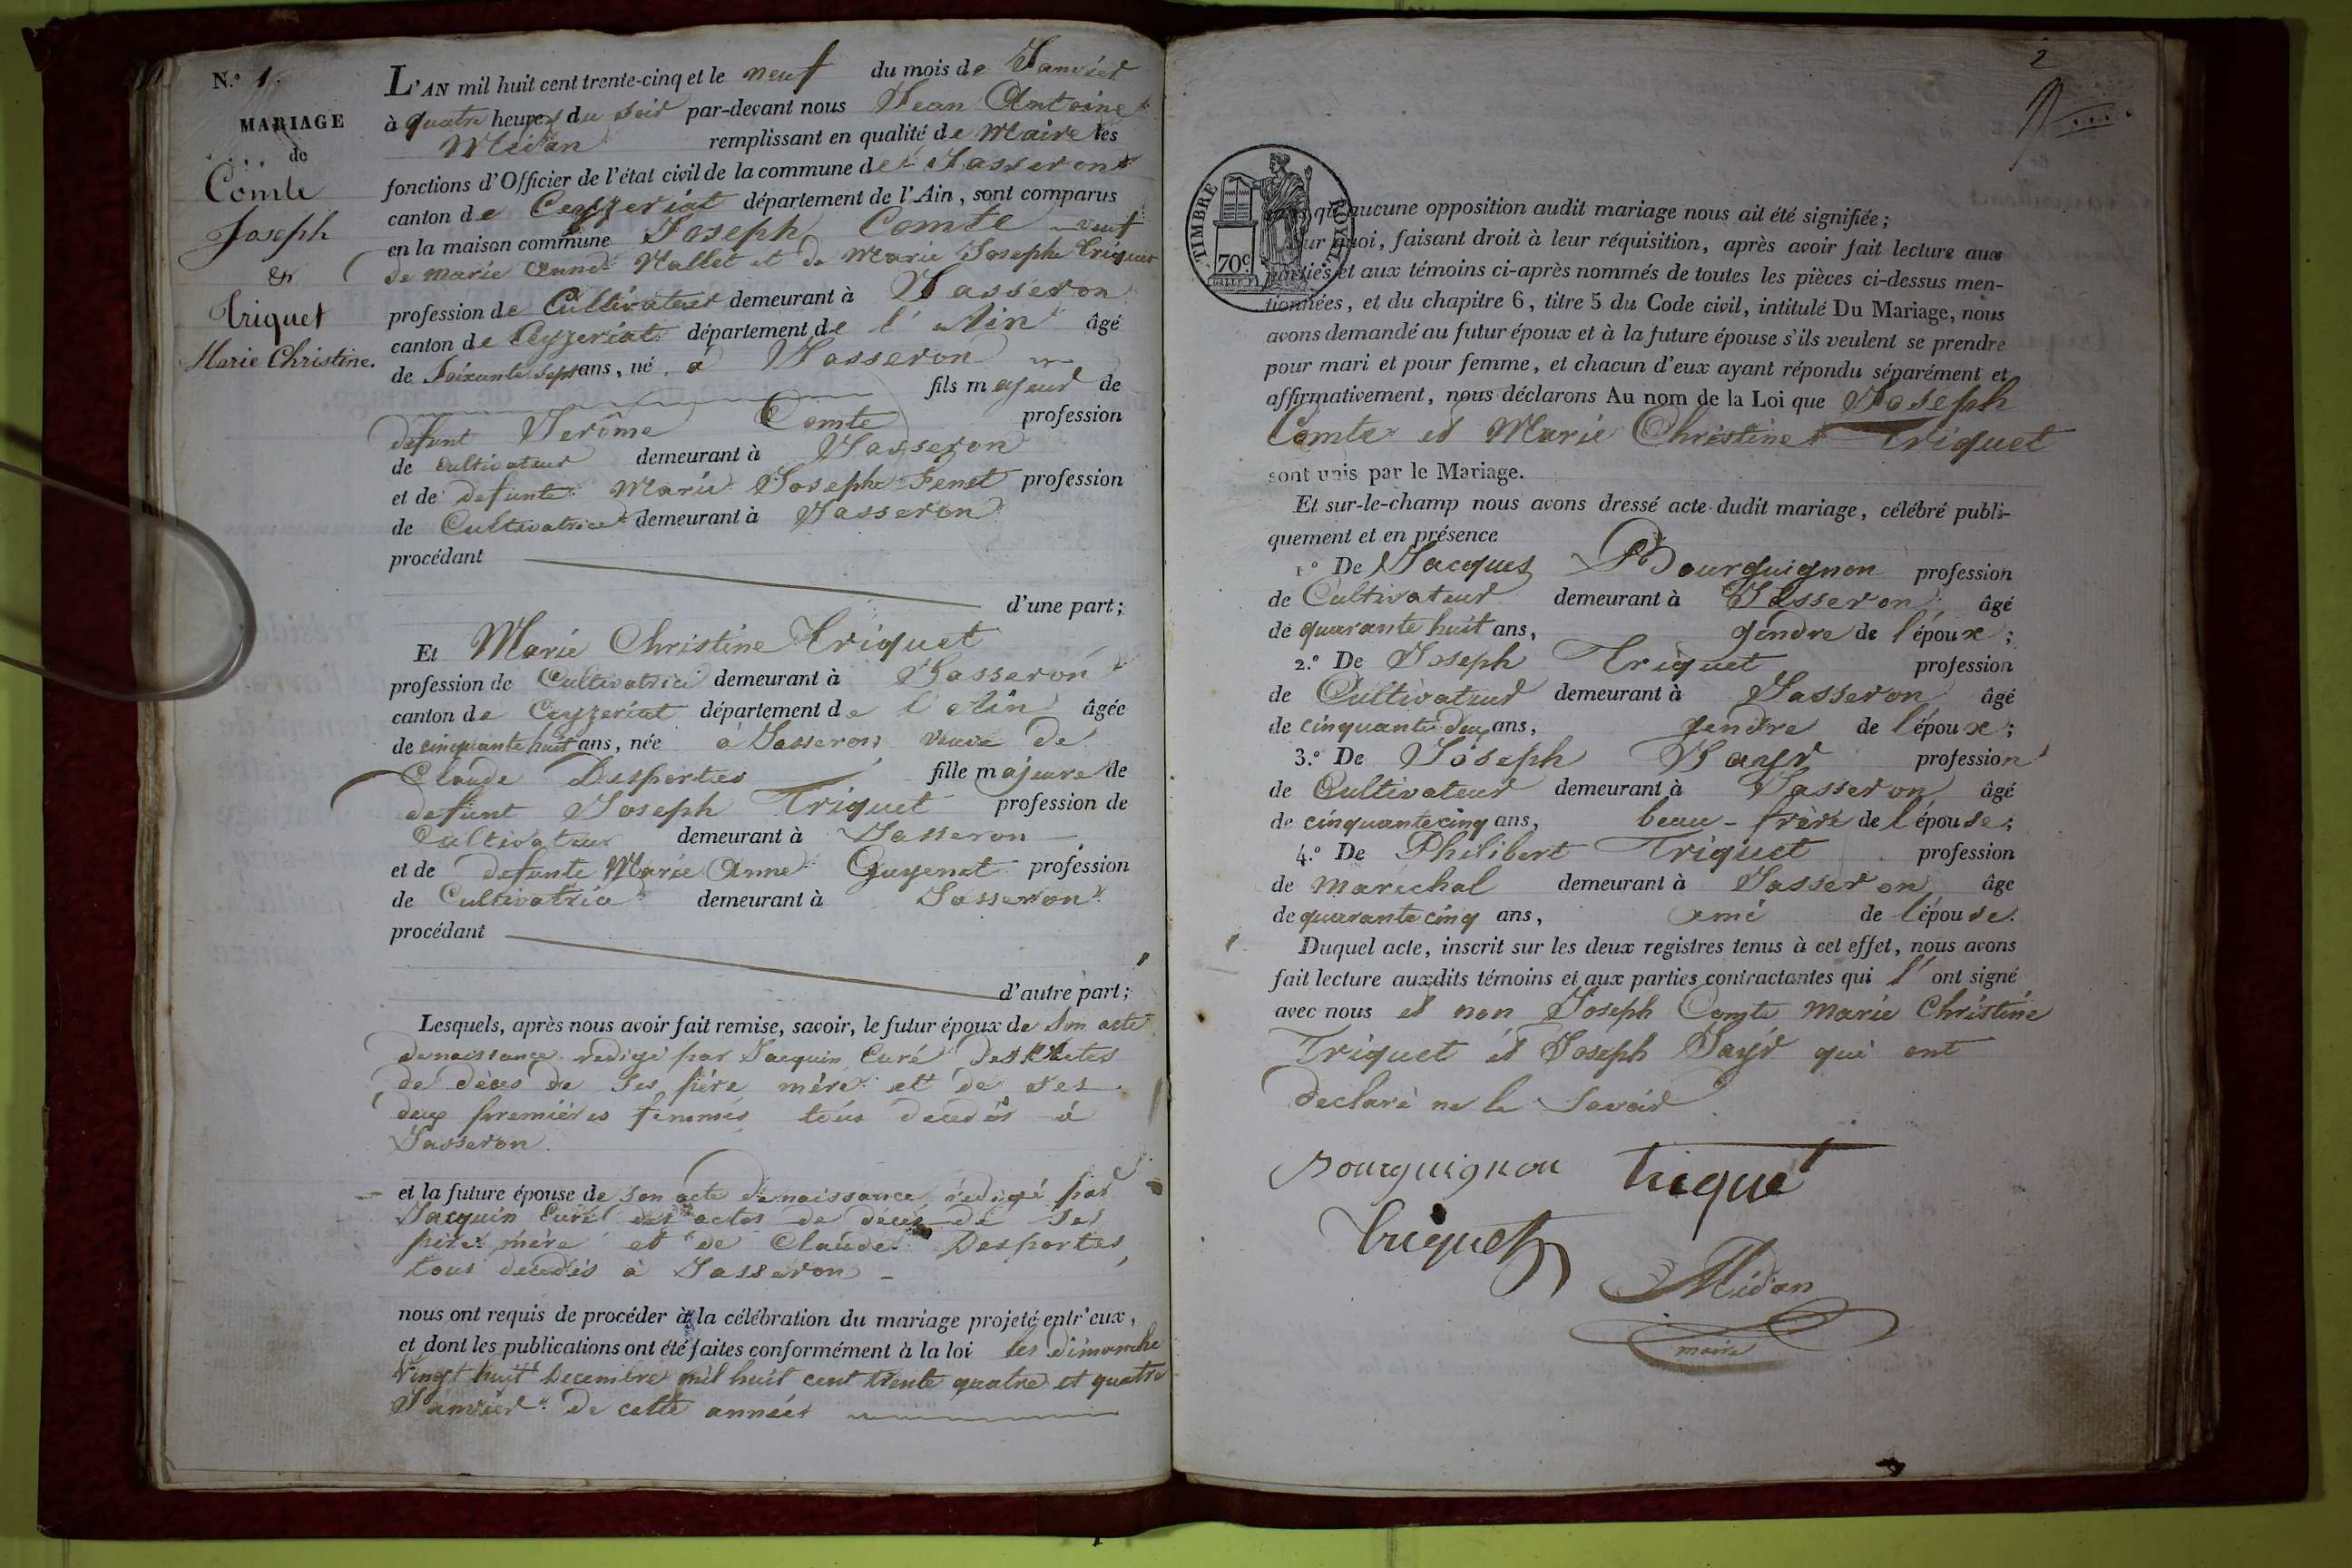 N.° 1.
MARIAGE
de
Comte
Joseph
&
Triquet
Marie Christine.
L'AN mil huit cent trente-cinq et le neuf du mois de Janvier
à quatre heures du soir par-devant nous Jean Antoine
Midan remplissant en qualité de Maire les
fonctions d'Officier de l'état civil de la commune de Jasseron
canton de Ceyzeriat département de l'Ain, sont comparus
en la maison commune Joseph Comte veuf
de marie anne Mallet et de Marie Josephe Triquet
profession de Cultivateur demeurant à Jasseron
canton de Ceyzeriat département de l'Ain âgé
de Soixante Sept ans, né à Jasseron
fils majeur de
defunt Jerôme Comte profession
de cultivateur demeurant à Jasseron
et de defunte Marie Josephe Fenet profession
de Cultivatrice demeurant à Jasseron
procédant
d'une part;
Et Marie Christine Triquet
profession de Cultivatrice demeurant à Jasseron
canton de Ceyzeriat département de l'Ain âgée
de cinquante huit ans, née à Jasseron veuve de
Claude Desportes fille majeure de
defunt Joseph Triquet profession de
Cultivateur demeurant à Jasseron
et de defunte Marie Anne Guyenet profession
de Cultivatrice demeurant à Jasseron
procédant
d'autre part;
Lesquels, après nous avoir fait remise, savoir, le futur époux de Son acte
denaissance redigé par Jacquin Curé des actes
de décès de ses père mère et de ses
deux premières femmes tous decedés à
Jasseron.
et la future épouse de son acte denaissance redigé par
Jacquin Curé des actes de décès de ses
père mère et de Claude Desportes
tous décédés à Jasseron
nous ont requis de procéder à la célébration du mariage projeté entr'eux,
et dont les publications ont été faites conformément à la loi les dimanche
vingt huit Decembre mil huit cent trente quatre et quatre
Janvier de cette année
2
TIMBRE ROYAL
70c
que aucune opposition audit mariage nous ait été signifiée;
quoi, faisant droit à leur réquisition, après avoir fait lecture aux
parties et aux témoins ci-après nommés de toutes les pièces ci-dessus men-
tionnées, et du chapitre 6, titre 5 du Code civil, intitulé Du Mariage, nous
avons demandé au futur époux et à la future épouse s'ils veulent se prendre
pour mari et pour femme, et chacun d'eux ayant répondu séparément et
affirmativement, nous déclarons Au nom de la Loi que Joseph
Comte et Marie Christine Triquet
sont unis par le Mariage.
Et sur-le-champ nous avons dressé acte dudit mariage, célébré publi-
quement et en présence
1.° De Jacques Bourguignon profession
de Cultivateur demeurant à Jasseron âgé
de quarante huit ans, gendre de l'époux;
2.° De Joseph Triquet profession
de Cultivateur demeurant à Jasseron âgé
de cinquante deux ans, gendre de l'époux;
3.° De Joseph Jayr profession
de Cultivateur demeurant à Jasseron âgé
de cinquante cinq ans, beau-frère de l'épouse;
4.° De Philibert Triquet profession
de marechal demeurant à Jasseron âge
de quarante cinq ans, amé de l'épouse.
Duquel acte, inscrit sur les deux registres tenus à cet effet, nous avons
fait lecture auxdits témoins et aux parties contractantes qui l'ont signé
avec nous et non Joseph Comte Marie Christine
Triquet et Joseph Jayr qui ont
declaré ne le Savoir
Bourguignon Triquet
Triquet
Midan
maire